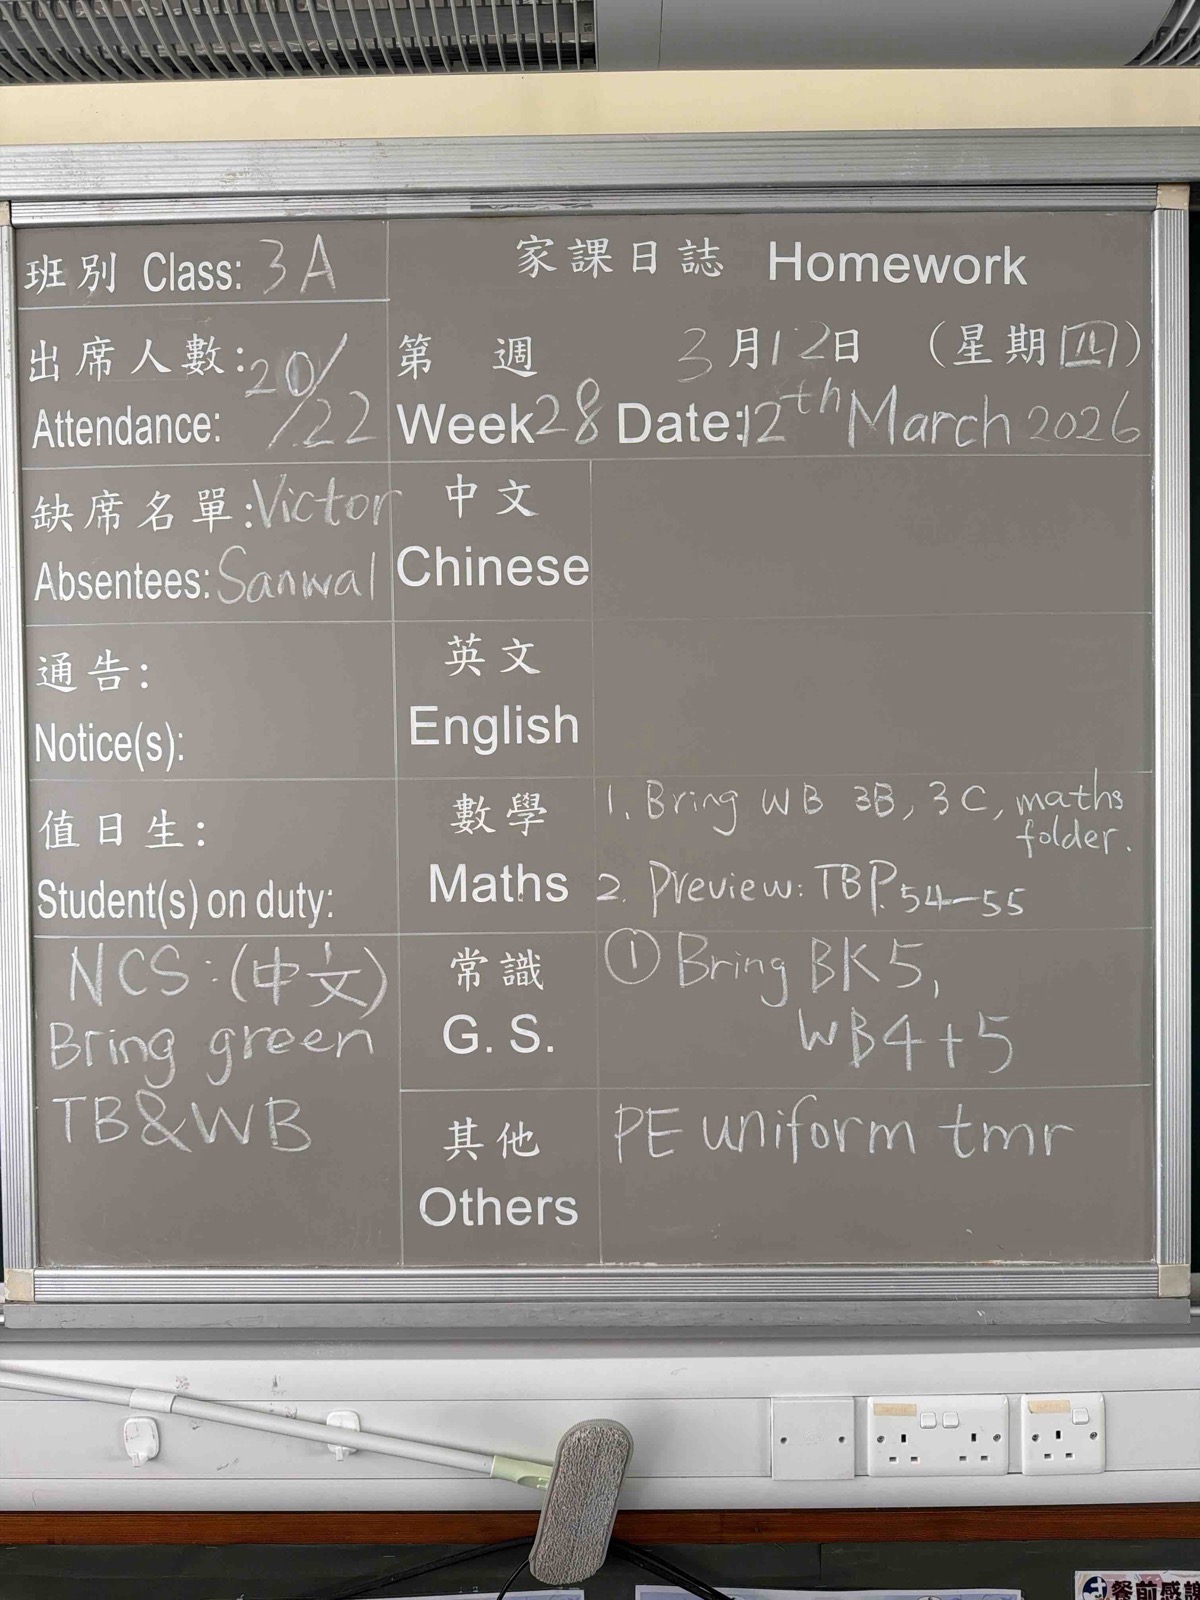 班別 Class: 3A
家課日誌 Homework
出席人數: 20/22
Attendance:
第 週 3月12日 (星期四)
Week 28 Date: 12th March 2026
缺席名單: Victor
Absentees: Sanwal
中文
Chinese
通告:
Notice(s):
英文
English
值日生:
Student(s) on duty:
數學
Maths
1. Bring WB 3B, 3C, maths
folder.
2. Preview: TB P.54-55
NCS: (中文)
Bring green
TB&WB
常識
G. S.
① Bring BK5,
WB4+5
其他
Others
PE uniform tmr
餐前感謝